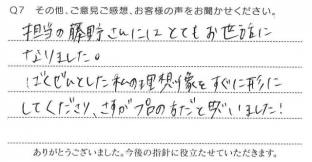 Q7 その他、ご意見ご感想、お客様の声をお聞かせください。
担当の藤野さんにはとてもお世話に
なりました。
ばくぜんとした私の理想像をすぐに形に
してくださり、さすがプロの方だと思いました!
ありがとうございました。今後の指針に役立たせていただきます。